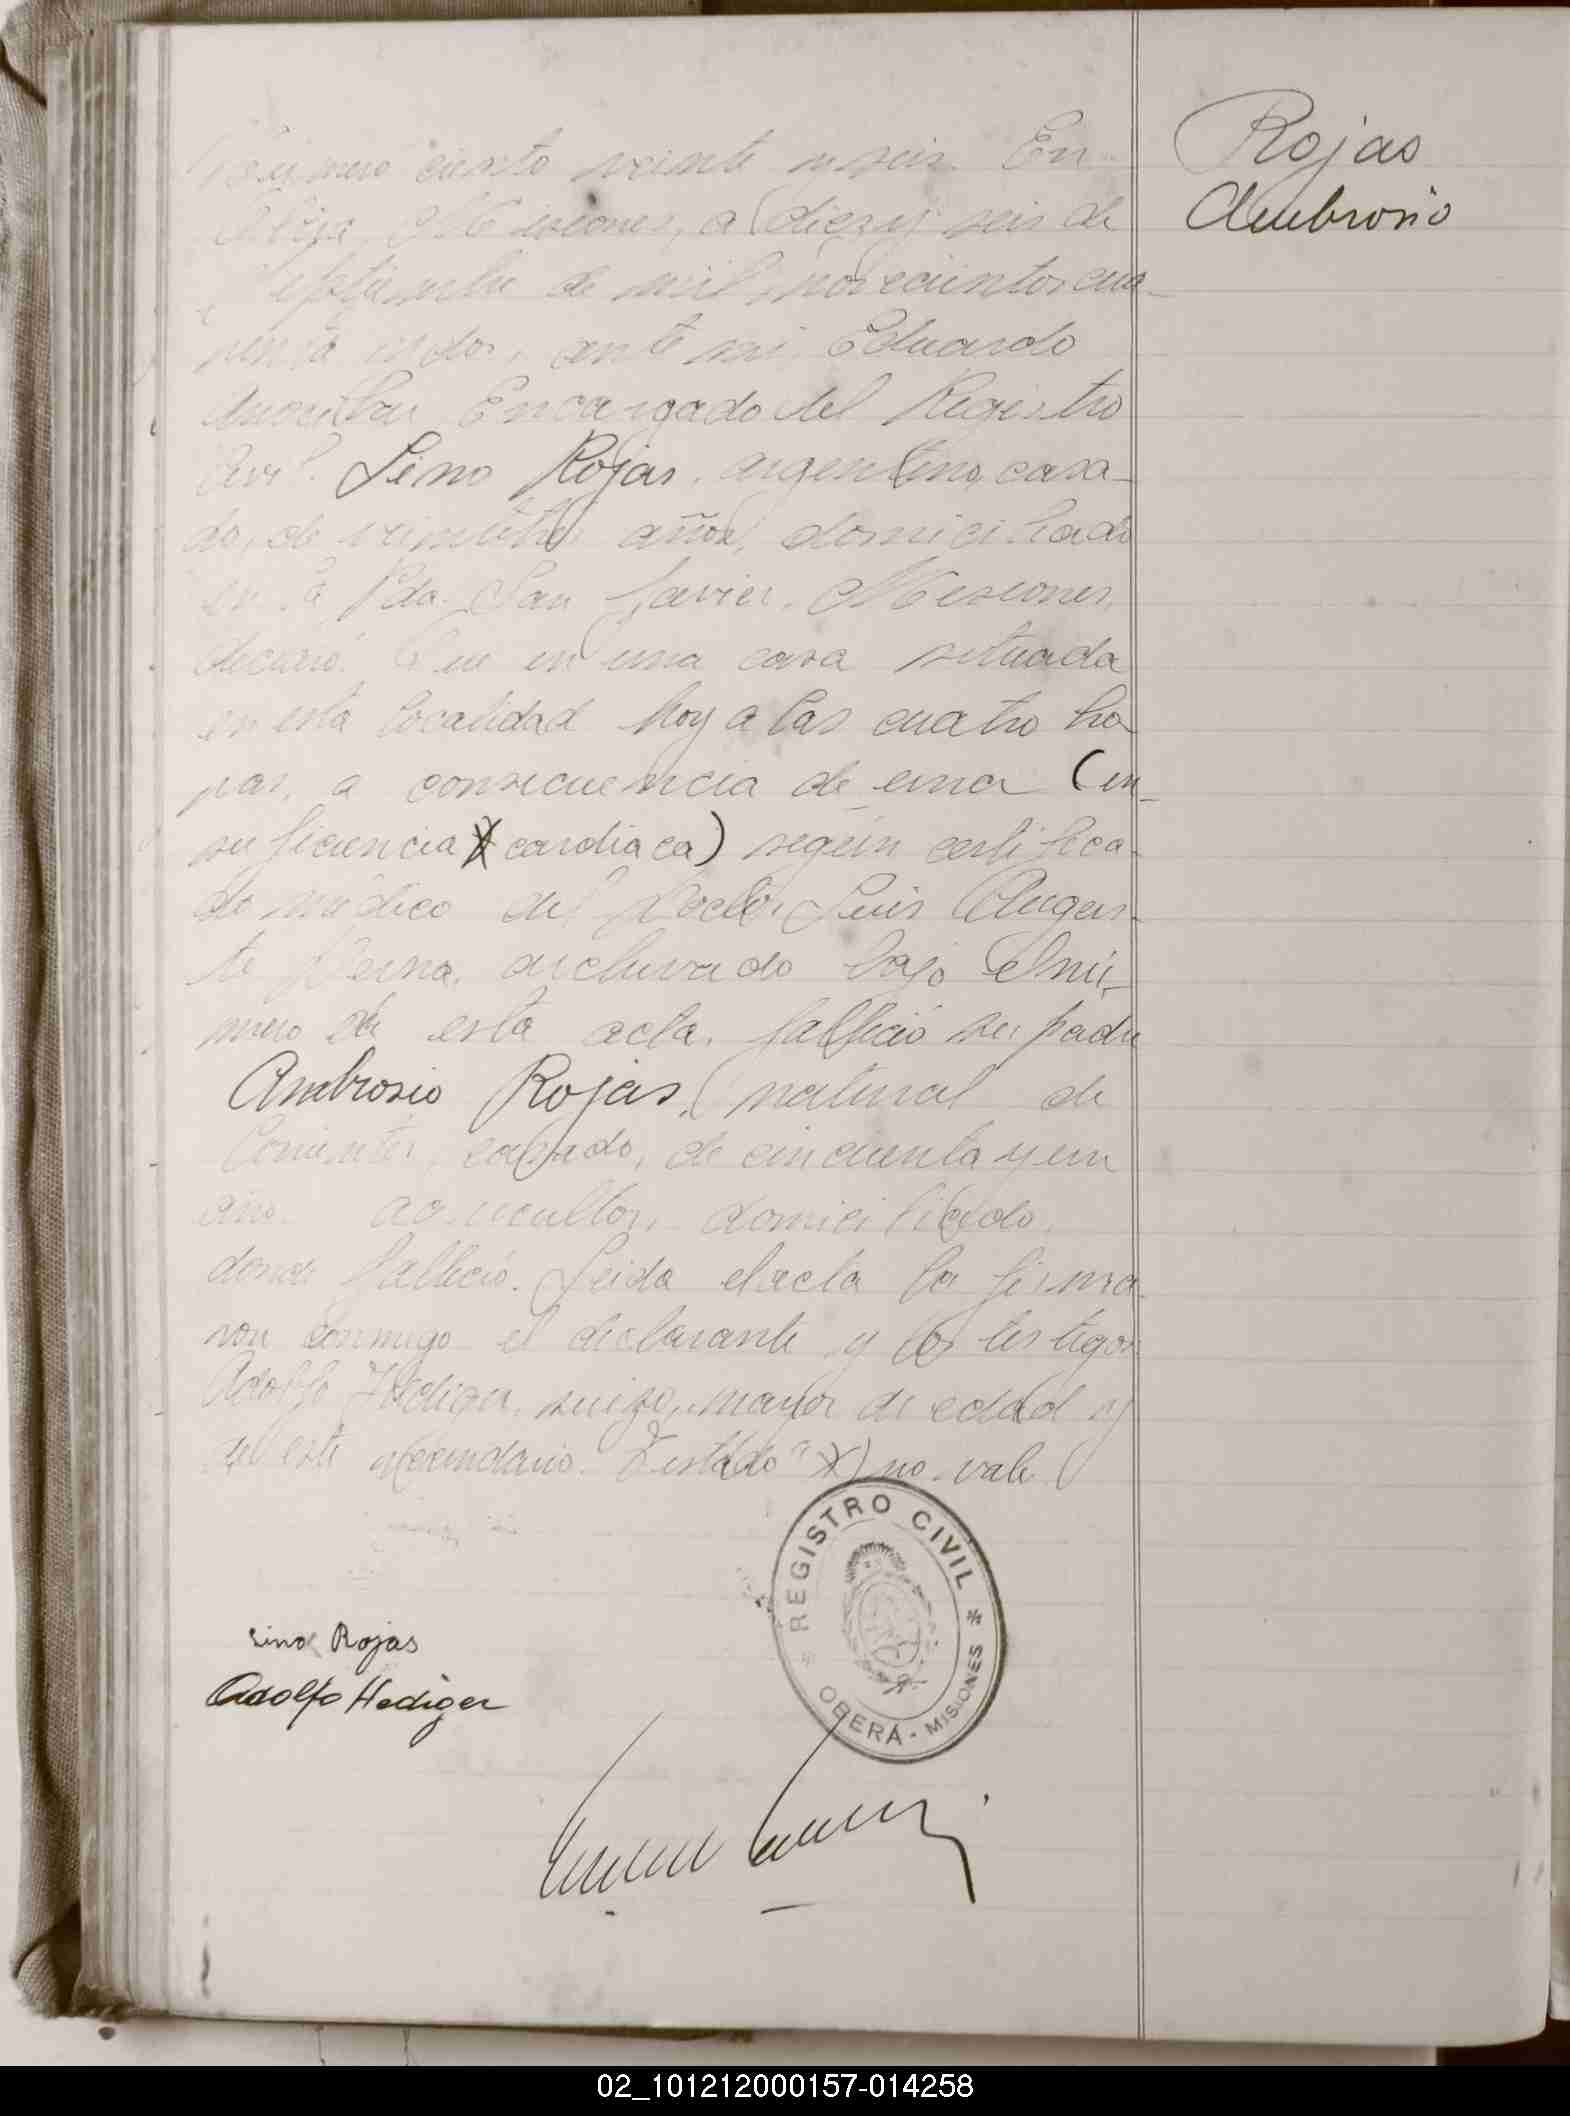 Rojas
Ambrosio
Número ciento veinte y seis. En
Misiones, a diez y seis de
septiembre de mil novecientos cua-
renta y dos, ante mi Eduardo
Encargado del Registro
Civil. Lino Rojas, argentino, casa-
do, de años, domiciliado
en la Pda. San Javier, Misiones,
declaró: Que en una casa situada
en esta localidad hoy a las cuatro ho
ras, a consecuencia de una (in-
suficiencia X cardiaca) según certifica-
do médico del Doctor Luis Augus-
to archivado bajo el nú-
mero de esta acta, falleció su padre
Ambrosio Rojas, natural de
Corrientes, casado, de cincuenta y un
año agricultor, domiciliado,
donde falleció. Leida el acta la firma-
ron conmigo el declarante y los testigos
Adolfo Hediger, suizo, mayor de edad y
de este vecindario. Testado "X") no vale
REGISTRO CIVIL
* OBERÁ - MISIONES *
Lino Rojas
Adolfo Hediger
02_101212000157-014258